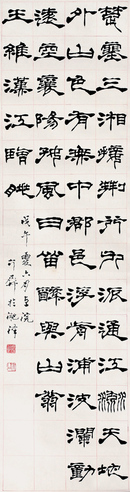 楚塞三湘接荊門九派通江流天地
外山色有無中郡邑浮前浦波瀾動
遠空襄陽好風日留醉與山翁
王維漢江臨眺
戊午夏六